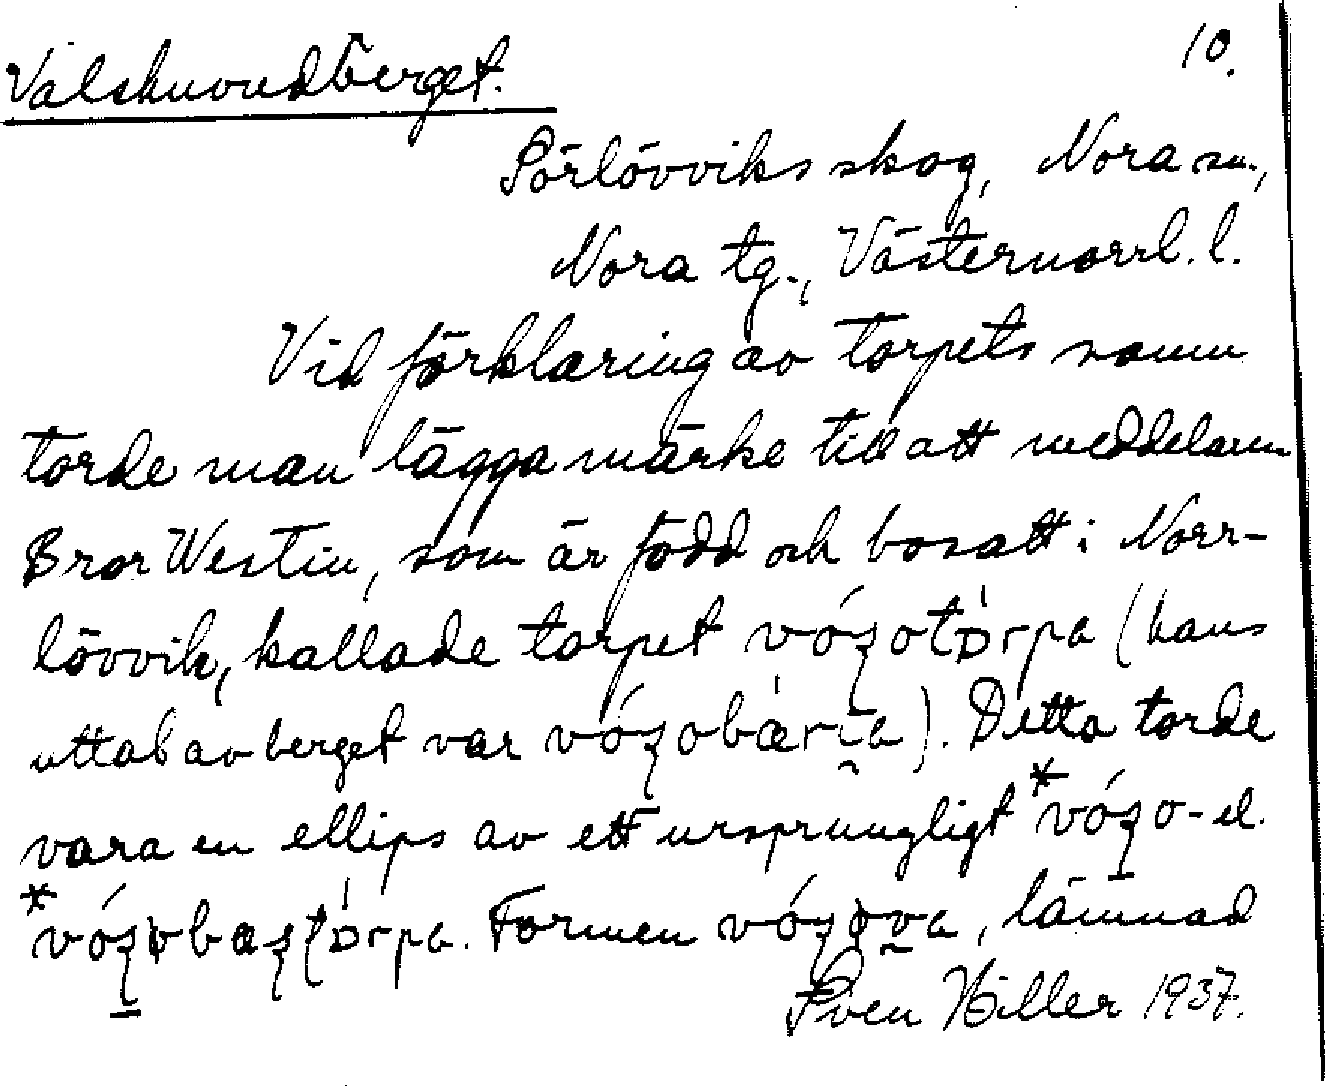 Valshuvudberget.
10.
Sörlövviks skog, Nora sn.,
Nora tg., Västernorrl. l.
Vid förklaring av torpets namn
torde man lägga märke till att meddelaren
Bror Westin, som är född och bosatt i Norr-
lövvik, kallade torpet (hans
uttal av berget var ). Detta torde
vara en ellips av ett ursprungligt el.
Formen , lämnad
Sven Hiller 1937.